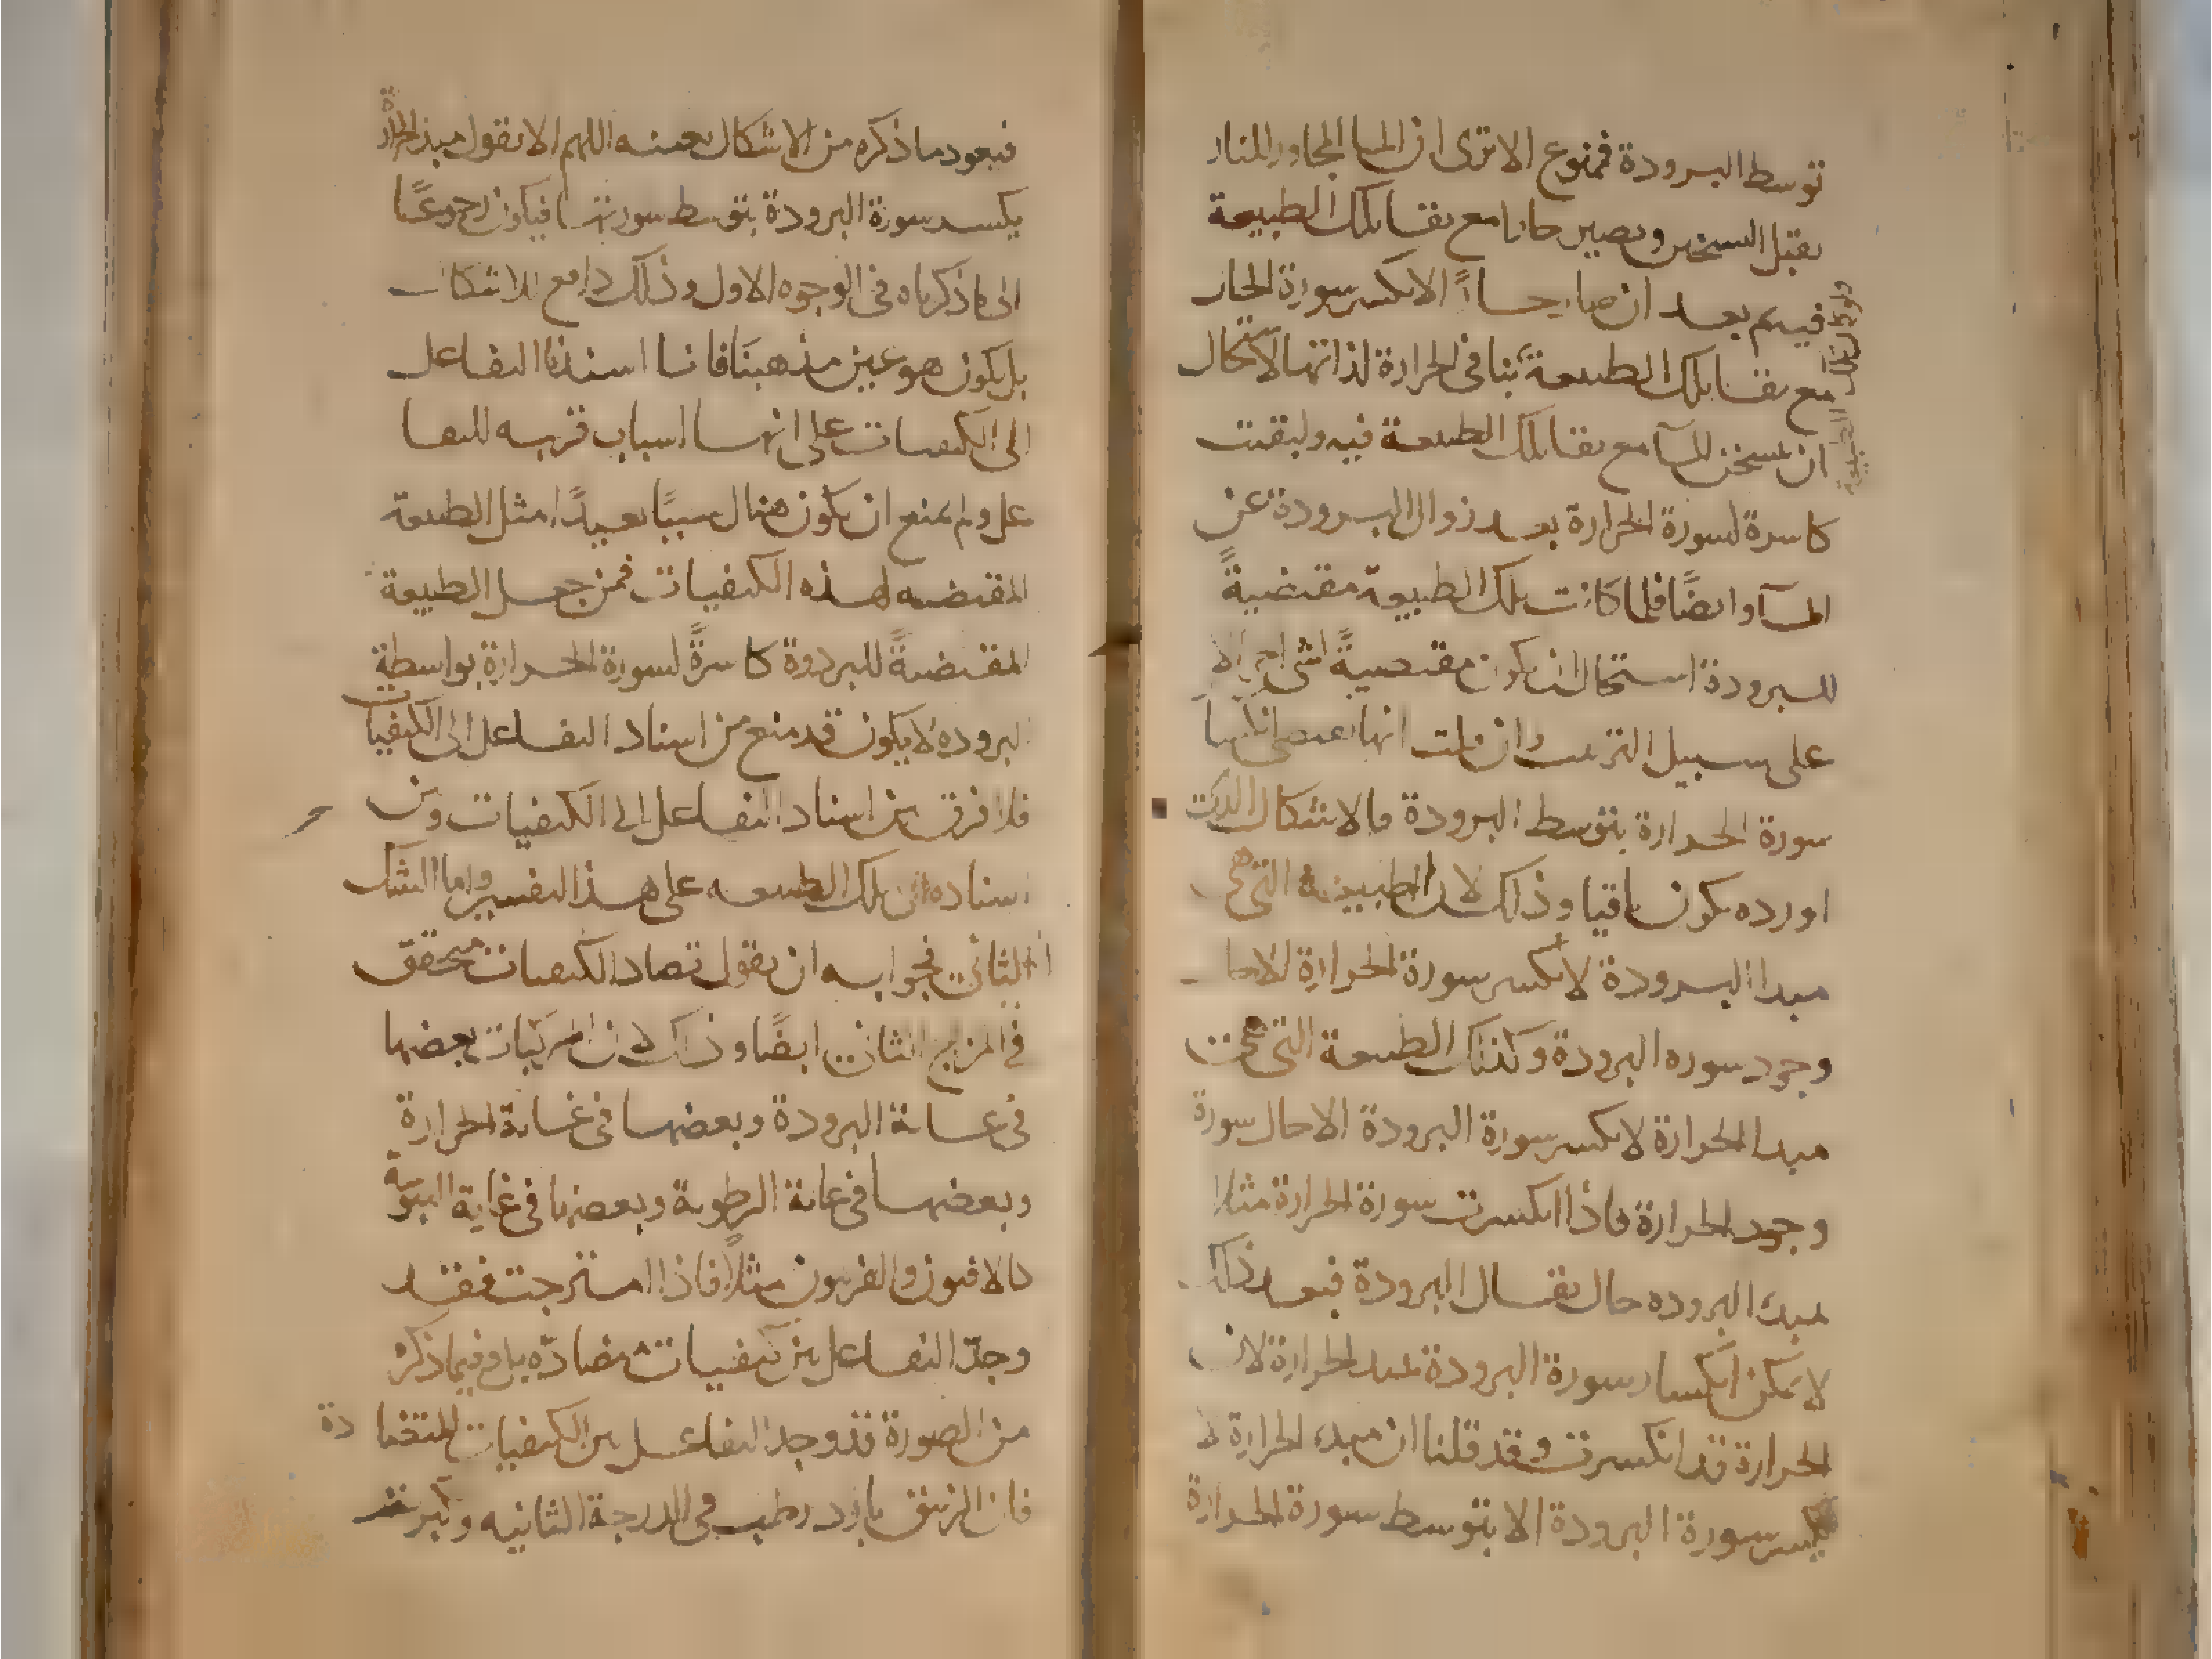 توسط البرودة فممنوع الا ترى ان الماء المجاور للنار
يقبل السخين ويصير حارا مع بقاء تلك الطبيعة
فيه ثم بعد ان صار حارا لا تكسر سورة الحار
مع بقاء تلك الطبيعة تنافى الحرارة لذاتها لاستحال
ان يسخن الماء مع بقاء تلك الطبيعة فيه ولبقيت
كاسرة لسورة الحرارة بعد زوال البرودة عن
الماء وايضًا فلما كانت تلك الطبيعة مقتضيةً
للبرودة استحال ان يكون مقتضيةً
على سبيل ان قلت انها
سورة الحرارة بتوسط البرودة فالاشكال الذى
اورده يكون باقيا وذلك لان الطبيعة التى هى
مبدا البرودة لا تكسر سورة الحرارة الا حال
وجود سورة البرودة وكذلك الطبيعة التى هى
مبدا الحرارة لا تكسر سورة البرودة الا حال سورة
وجود الحرارة فاذا انكسرت سورة الحرارة مثلا
مبدء البروده حال بقاء البرودة فبعد ذلك
لا يمكن انكسار سورة البرودة بمبدء الحرارة لان
الحرارة قد انكسرت وقد قلنا ان مبدء الحرارة لا
يكسر سورة البرودة الا بتوسط سورة الحرارة
فيعود ما ذكره من الاشكال بعينه اللهم الا يقول مبدء الحرارة
يكسر سورة البرودة بتوسط سورتها فيكون رجوعًا
الى ما ذكرناه فى الوجوه الاول وذلك دافع للاشكال
بل يكون هو عين مذهبنا فانا اسندنا التفاعل
الى الكيفيات على انها اسباب قريبه للتفا
عل ولم نمنع ان يكون هناك سببًا بعيدًا مثل الطبيعة
المقتضيه لهذه الكيفيات فمن جعل الطبيعة
المقتضيةً للبرودة كاسرةً لسورة الحرارة بواسطة
البروده لا يكون قد منع من اسناد التفاعل الى الكيفيات
فلا فرق بين اسناد التفاعل الى الكيفيات وبين
اسناده الى تلك الطبيعه على هذا التفسير واما الشك
الثانى فجوابه ان يقول تضاد الكيفيات متحقق
فى المزاج الثانى ايضًا وذلك لان المركبات بعضها
فى غاية البرودة وبعضها فى غاية الحرارة
وبعضها فى غاية الرطوبة وبعضها فى غاية اليبوسة
كالافيون والفربيون مثلاً فاذا امتزجت فقد
وجد التفاعل بين كيفيات متضادّه بل وفيما ذكره
من الصورة قد وجد التفاعل بين الكيفيات المتضا دة
فان الزيبق بارد رطب فى الدرجة الثانيه